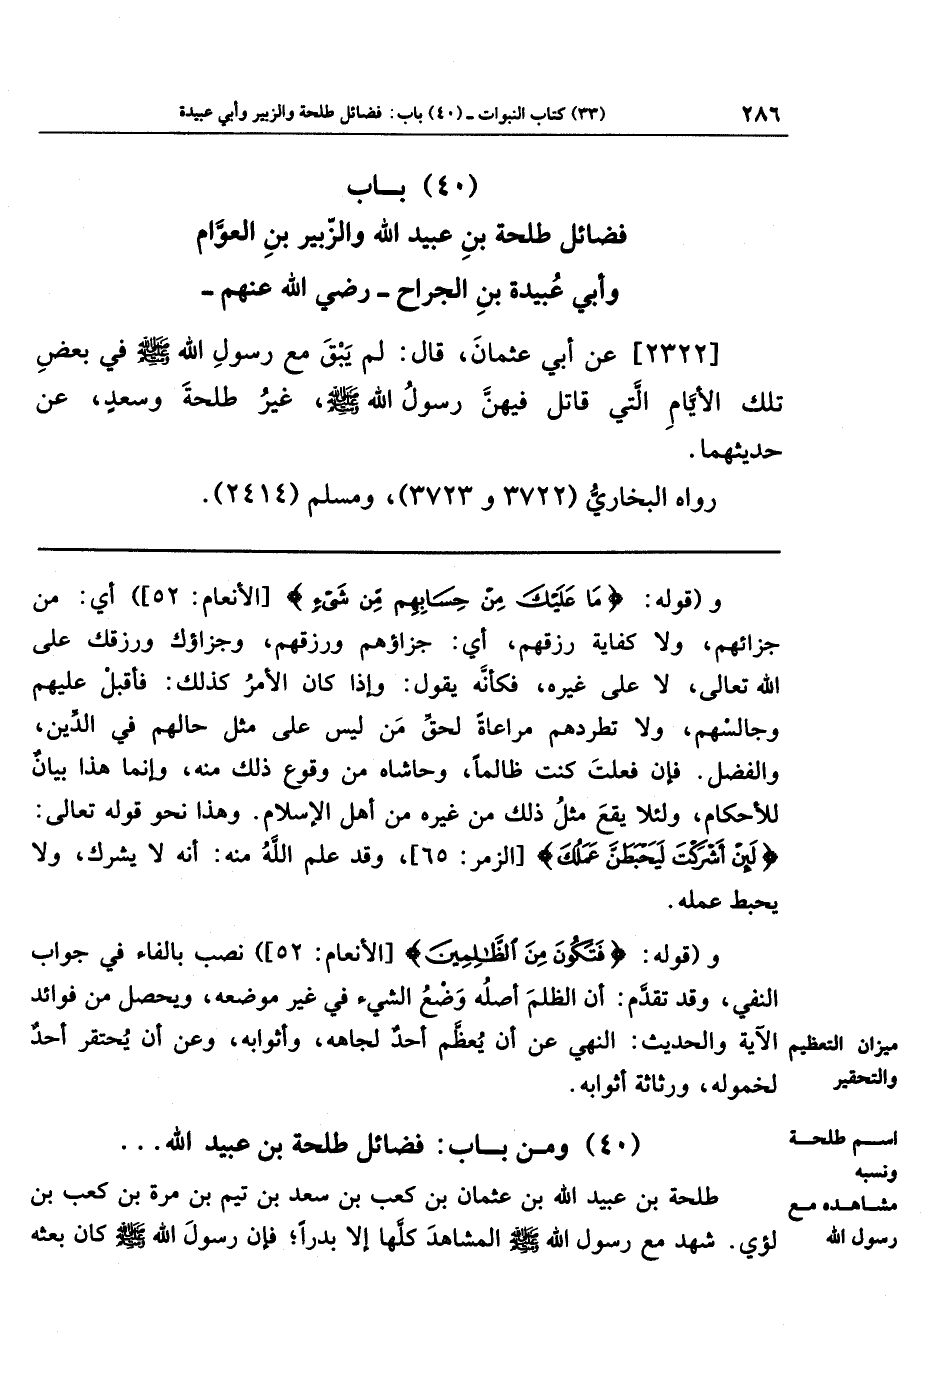 ٢٨٦
(٣٣) كتاب النبوات - (٤٠) باب: فضائل طلحة والزبير وأبي عبيدة
(٤٠) بـــاب
فضائل طلحة بنِ عبيد الله والزّبير بنِ العوَّام
وأبي عُبيدة بنِ الجراح - رضي الله عنهم -
[٢٣٢٢] عن أبي عثمانَ، قال: لم يَبْقَ مع رسولِ الله ﷺ في بعضِ
تلك الأيَّامِ الَّتي قاتل فيهنَّ رسولُ الله ﷺ، غيرُ طلحةَ وسعدٍ، عن
حديثهما.
رواه البخاريُّ (٣٧٢٢ و ٣٧٢٣)، ومسلم (٢٤١٤).
و (قوله: ﴿مَا عَلَيْكَ مِنْ حِسَابِهِم مِّن شَيْءٍ﴾ [الأنعام: ٥٢]) أي: من
جزائهم، ولا كفاية رزقهم، أي: جزاؤهم ورزقهم، وجزاؤك ورزقك على
الله تعالى، لا على غيره، فكأنَّه يقول: وإذا كان الأمرُ كذلك: فأقبلْ عليهم
وجالسْهم، ولا تطردهم مراعاةً لحقِّ مَن ليس على مثل حالهم في الدِّين،
والفضل. فإن فعلتَ كنت ظالماً، وحاشاه من وقوع ذلك منه، وإنما هذا بيانٌ
للأحكام، ولئلا يقعَ مثلُ ذلك من غيره من أهل الإسلام. وهذا نحو قوله تعالى:
﴿لَئِنْ أَشْرَكْتَ لَيَحْبَطَنَّ عَمَلُكَ﴾ [الزمر: ٦٥]، وقد علم اللَّهُ منه: أنه لا يشرك، ولا
يحبط عمله.
و (قوله: ﴿فَتَكُونَ مِنَ ٱلظَّـٰلِمِينَ﴾ [الأنعام: ٥٢]) نصب بالفاء في جواب
النفي، وقد تقدَّم: أن الظلمَ أصلُه وَضْعُ الشيء في غير موضعه، ويحصل من فوائد
الآية والحديث: النهي عن أن يُعظَّم أحدٌ لجاهه، وأثوابه، وعن أن يُحتقر أحدٌ
لخموله، ورثاثة أثوابه.
ميزان التعظيم
والتحقير
(٤٠) ومـن بـــاب: فضائل طلحة بن عبيد الله...
اســم طلحــة
ونسبه
طلحة بن عبيد الله بن عثمان بن كعب بن سعد بن تيم بن مرة بن كعب بن
لؤي. شهد مع رسول الله ﷺ المشاهدَ كلَّها إلا بدراً؛ فإن رسولَ الله ﷺ كان بعثه
مشــاهـده مـع
رسول الله